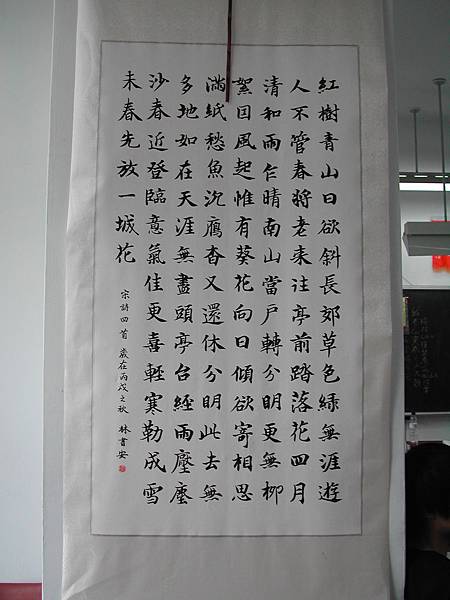 紅樹青山日欲斜長郊草色綠無涯遊
人不管春將老來往亭前踏落花四月
清和雨乍晴南山當戶轉分明更無柳
絮因風起惟有葵花向日傾欲寄相思
滿紙愁魚沉鴈杳又還休分明此去無
多地如在天涯無盡頭亭台經雨壓塵
沙春近登臨意氣佳更喜輕寒勒成雪
未春先放一城花
宋詩四首 歲在丙戌之秋 林書安